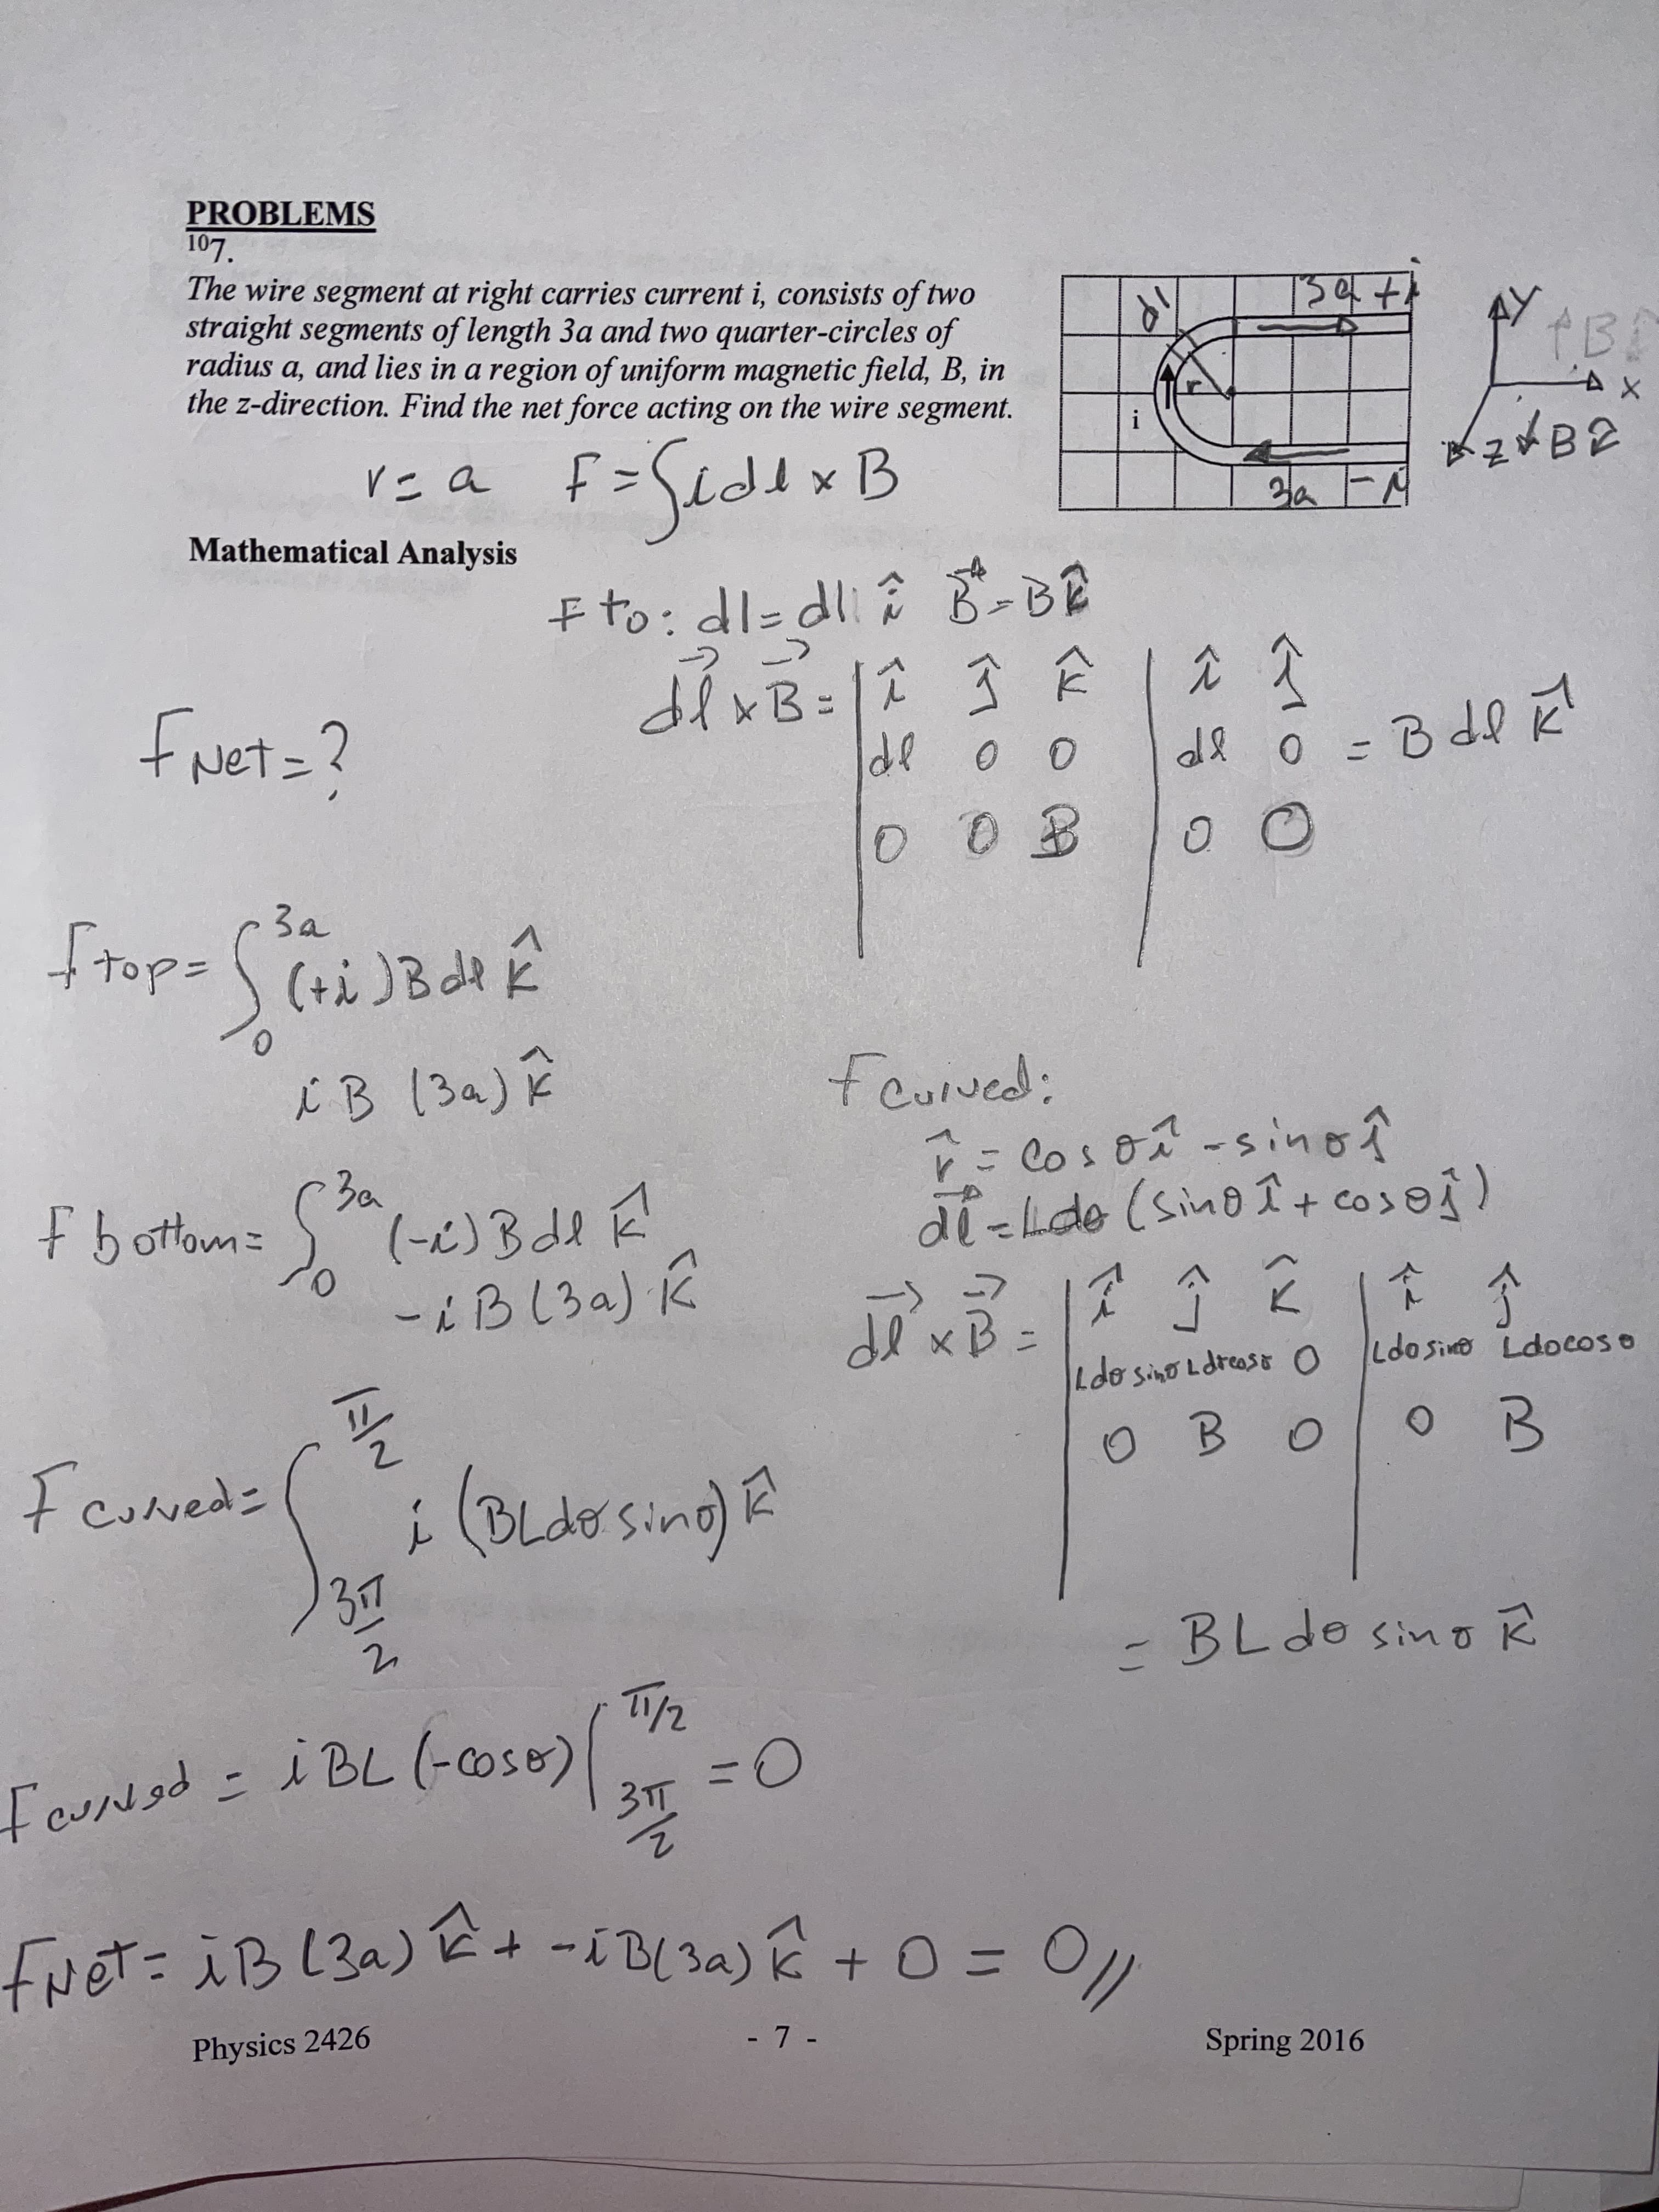 PROBLEMS
107.
The wire segment at right carries current i, consists of two
straight segments of length 3a and two quarter-circles of
radius a, and lies in a region of uniform magnetic field, B, in
the z-direction. Find the net force acting on the wire segment.
dl 3a +i
r
i
3a -i
Y
B
x
z B k̂
r = a F = ∫idl × B
Mathematical Analysis
F to: dl = dl î B⃗ = B k̂
d⃗l × B⃗ = | î ĵ k̂ | î ĵ
dl 0 0 | dl 0 = B dl k̂
0 0 B | 0 0
F Net = ?
F top = ∫₀^3a (+i) B dl k̂
i B (3a) k̂
F bottom = ∫₀^3a (-i) B dl k̂
-i B (3a) k̂
F curved:
r̂ = cos θ î - sin θ ĵ
d⃗l = L dθ (sin θ î + cos θ ĵ)
d⃗l × B⃗ = | î ĵ k̂ | î ĵ
Ldθ sinθ Ldθcosθ 0 | Ldθsinθ Ldθcosθ
0 B 0 | 0 B
= B L dθ sin θ k̂
F curved = ∫_3π/2^π/2 i (BL dθ sin θ) k̂
F curved = i BL (-cos θ) |_3π/2^π/2 = 0
F Net = i B (3a) k̂ + -i B (3a) k̂ + 0 = 0 //
Physics 2426 - 7 - Spring 2016